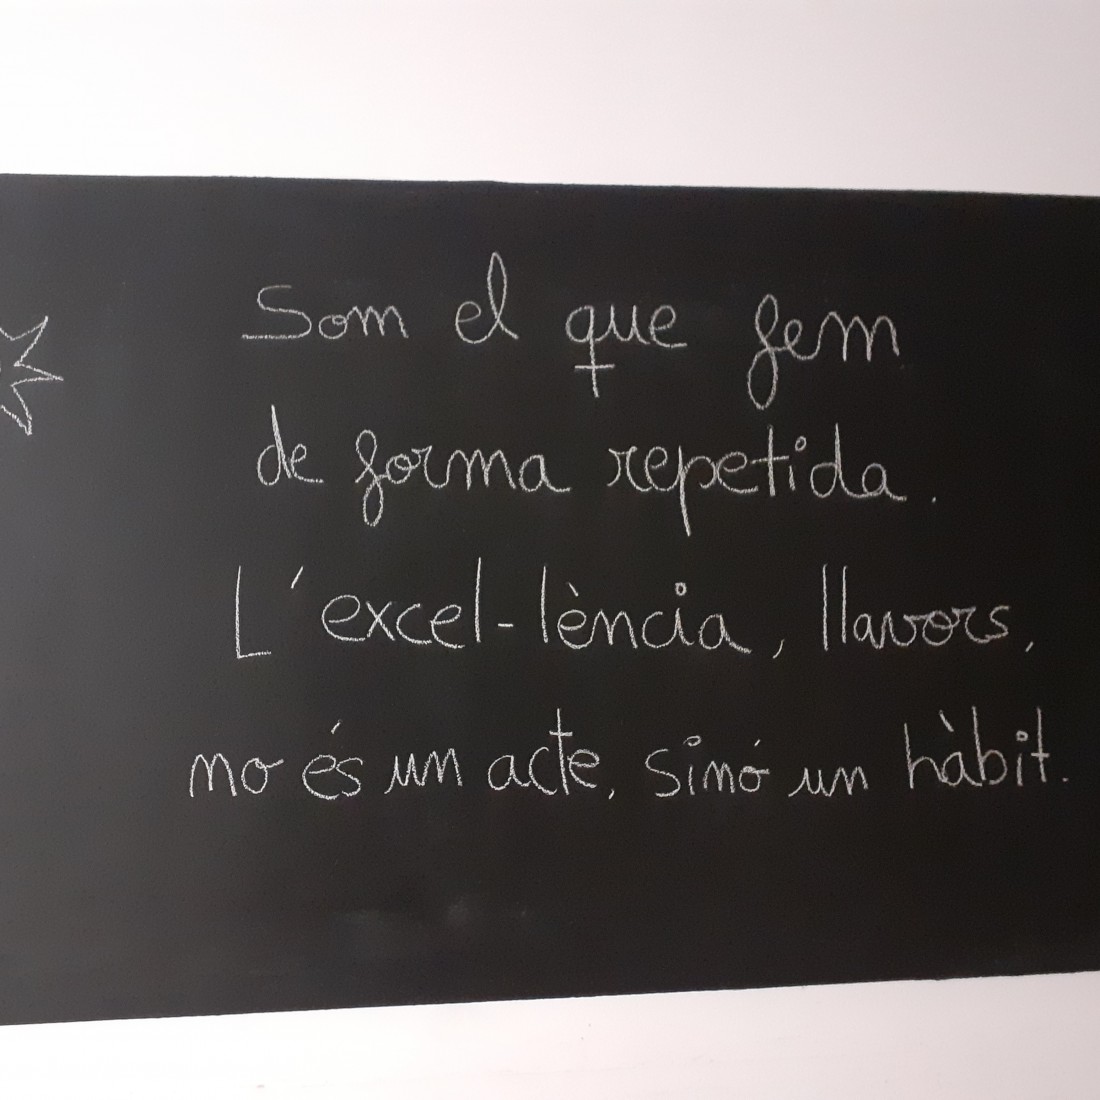 Som el que fem
de forma repetida.
L'excel-lència, llavors,
no és un acte, sinó un hàbit.